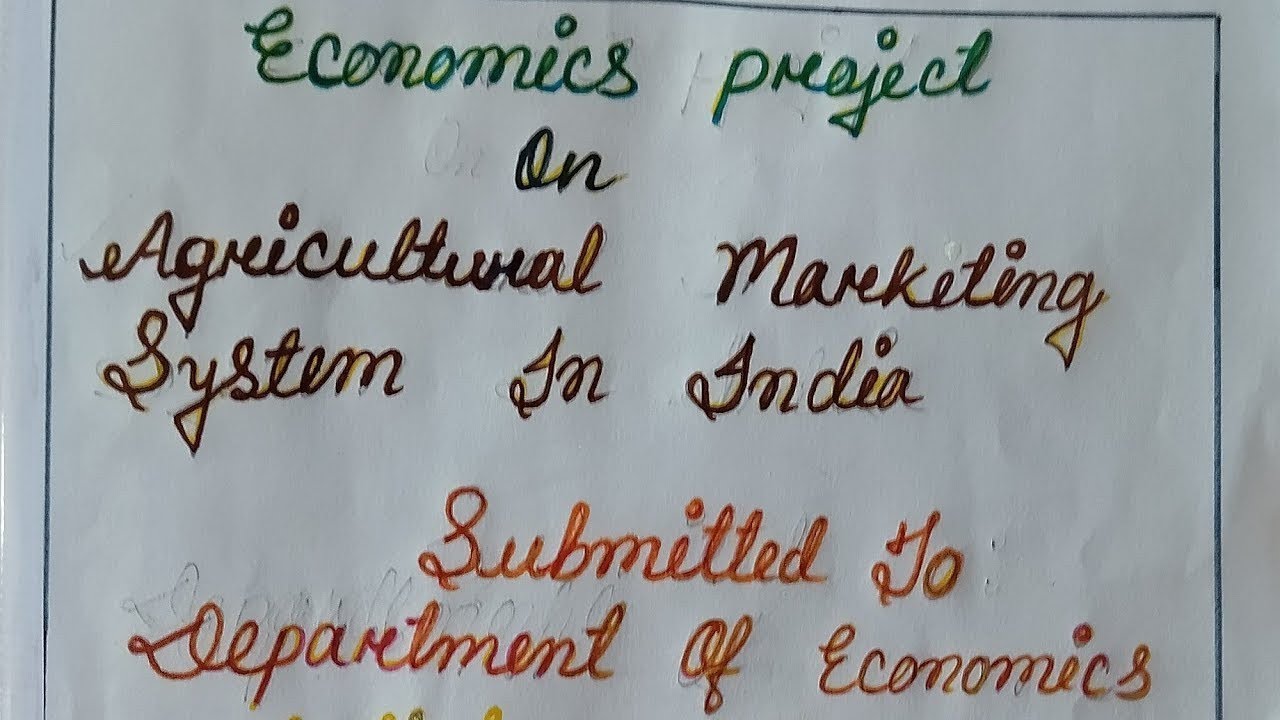 Economics project
On
Agricultural Marketing
System In India
Submitted To
Department Of Economics